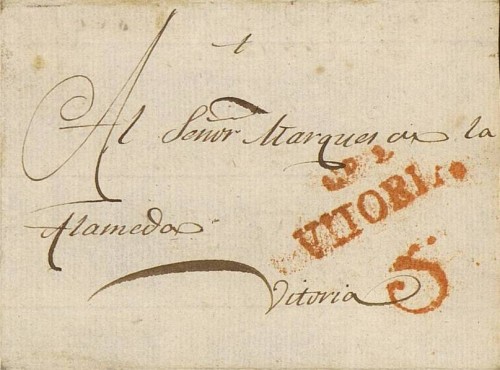 Al Señor Marques de la
VITORI.
Alameda
Vitoria
5